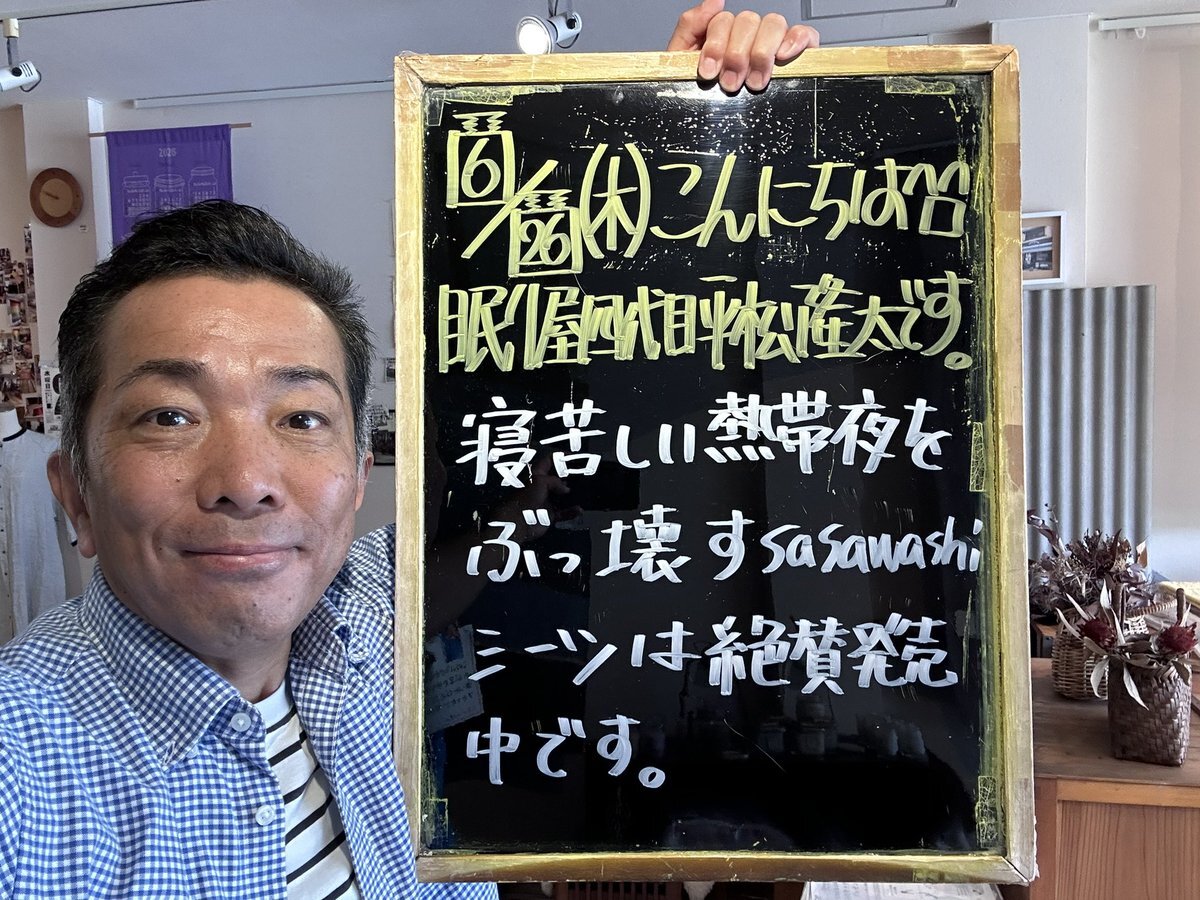 2025
6/26(木)こんにちは
眠り屋四代目平松産太です。
寝苦しい熱帯夜を
ぶっ壊すsasawashi
シーツは絶賛発売
中です。